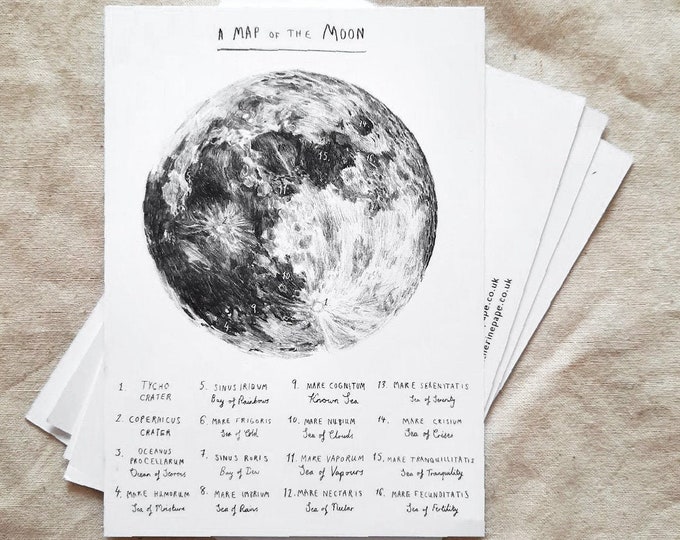 A MAP OF THE MOON
1. TYCHO CRATER
2. COPERNICUS CRATER
3. OCEANUS PROCELLARUM
Ocean of Storms
4. MARE HUMORUM
Sea of Moisture
5. SINUS IRIDUM
Bay of Rainbows
6. MARE FRIGORIS
Sea of Cold
7. SINUS RORIS
Bay of Dew
8. MARE IMBRIUM
Sea of Rains
9. MARE COGNITUM
Known Sea
10. MARE NUBIUM
Sea of Clouds
11. MARE VAPORUM
Sea of Vapours
12. MARE NECTARIS
Sea of Nectar
13. MARE SERENITATIS
Sea of Serenity
14. MARE CRISIUM
Sea of Crises
15. MARE TRANQUILLITATIS
Sea of Tranquility
16. MARE FECUNDITATIS
Sea of Fertility
herinepape.co.uk
pape.co.uk